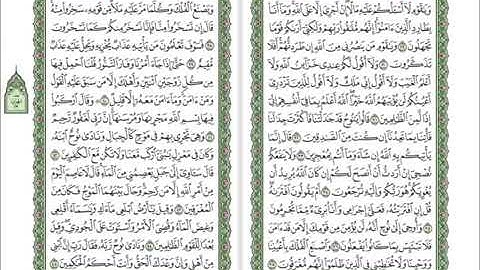 وَيَٰقَوْمِ لَآ أَسْـَٔلُكُمْ عَلَيْهِ مَالًا إِنْ أَجْرِيَ إِلَّا عَلَى ٱللَّهِ وَمَآ أَنَا۠
بِطَارِدِ ٱلَّذِينَ ءَامَنُوٓا۟ إِنَّهُم مُّلَٰقُوا۟ رَبِّهِمْ وَلَٰكِنِّيٓ أَرَىٰكُمْ قَوْمًا
تَجْهَلُونَ ٢٩ وَيَٰقَوْمِ مَن يَنصُرُنِي مِنَ ٱللَّهِ إِن طَرَدتُّهُمْ أَفَلَا
تَذَكَّرُونَ ٣٠ وَلَآ أَقُولُ لَكُمْ عِندِي خَزَآئِنُ ٱللَّهِ وَلَآ
أَعْلَمُ ٱلْغَيْبَ وَلَآ أَقُولُ إِنِّي مَلَكٌ وَلَآ أَقُولُ لِلَّذِينَ تَزْدَرِيٓ
أَعْيُنُكُمْ لَن يُؤْتِيَهُمُ ٱللَّهُ خَيْرًا ٱللَّهُ أَعْلَمُ بِمَا فِيٓ أَنفُسِهِمْ إِنِّيٓ
إِذًا لَّمِنَ ٱلظَّٰلِمِينَ ٣١ قَالُوا۟ يَٰنُوحُ قَدْ جَٰدَلْتَنَا فَأَكْثَرْتَ
جِدَٰلَنَا فَأْتِنَا بِمَا تَعِدُنَآ إِن كُنتَ مِنَ ٱلصَّٰدِقِينَ ٣٢ قَالَ إِنَّمَا
يَأْتِيكُم بِهِ ٱللَّهُ إِن شَآءَ وَمَآ أَنتُم بِمُعْجِزِينَ ٣٣ وَلَا يَنفَعُكُمْ
نُصْحِيٓ إِنْ أَرَدتُّ أَنْ أَنصَحَ لَكُمْ إِن كَانَ ٱللَّهُ يُرِيدُ أَن
يُغْوِيَكُمْ هُوَ رَبُّكُمْ وَإِلَيْهِ تُرْجَعُونَ ٣٤ أَمْ يَقُولُونَ ٱفْتَرَىٰهُ
قُلْ إِنِ ٱفْتَرَيْتُهُۥ فَعَلَيَّ إِجْرَامِي وَأَنَا۠ بَرِيٓءٌ مِّمَّا تُجْرِمُونَ
٣٥ وَأُوحِيَ إِلَىٰ نُوحٍ أَنَّهُۥ لَن يُؤْمِنَ مِن قَوْمِكَ إِلَّا مَن قَدْ
ءَامَنَ فَلَا تَبْتَئِسْ بِمَا كَانُوا۟ يَفْعَلُونَ ٣٦ وَٱصْنَعِ ٱلْفُلْكَ بِأَعْيُنِنَا
وَوَحْيِنَا وَلَا تُخَٰطِبْنِي فِي ٱلَّذِينَ ظَلَمُوٓا۟ إِنَّهُم مُّغْرَقُونَ ٣٧
وَيَصْنَعُ ٱلْفُلْكَ وَكُلَّمَا مَرَّ عَلَيْهِ مَلَأٌ مِّن قَوْمِهِۦ سَخِرُوا۟ مِنْهُ
قَالَ إِن تَسْخَرُوا۟ مِنَّا فَإِنَّا نَسْخَرُ مِنكُمْ كَمَا تَسْخَرُونَ
٣٨ فَسَوْفَ تَعْلَمُونَ مَن يَأْتِيهِ عَذَابٌ يُخْزِيهِ وَيَحِلُّ عَلَيْهِ عَذَابٌ
مُّقِيمٌ ٣٩ حَتَّىٰٓ إِذَا جَآءَ أَمْرُنَا وَفَارَ ٱلتَّنُّورُ قُلْنَا ٱحْمِلْ فِيهَا
مِن كُلٍّ زَوْجَيْنِ ٱثْنَيْنِ وَأَهْلَكَ إِلَّا مَن سَبَقَ عَلَيْهِ ٱلْقَوْلُ
وَمَنْ ءَامَنَ وَمَآ ءَامَنَ مَعَهُۥٓ إِلَّا قَلِيلٌ ٤٠ وَقَالَ ٱرْكَبُوا۟
فِيهَا بِسْمِ ٱللَّهِ مَجْر۪ىٰهَا وَمُرْسَىٰهَآ إِنَّ رَبِّي لَغَفُورٌ رَّحِيمٌ
٤١ وَهِيَ تَجْرِي بِهِمْ فِي مَوْجٍ كَٱلْجِبَالِ وَنَادَىٰ نُوحٌ ٱبْنَهُۥ
وَكَانَ فِي مَعْزِلٍ يَٰبُنَيَّ ٱرْكَب مَّعَنَا وَلَا تَكُن مَّعَ ٱلْكَٰفِرِينَ ٤٢
قَالَ سَـَٔاوِيٓ إِلَىٰ جَبَلٍ يَعْصِمُنِي مِنَ ٱلْمَآءِ قَالَ لَا عَاصِمَ
ٱلْيَوْمَ مِنْ أَمْرِ ٱللَّهِ إِلَّا مَن رَّحِمَ وَحَالَ بَيْنَهُمَا ٱلْمَوْجُ فَكَانَ مِنَ
ٱلْمُغْرَقِينَ ٤٣ وَقِيلَ يَٰٓأَرْضُ ٱبْلَعِي مَآءَكِ وَيَٰسَمَآءُ أَقْلِعِي
وَغِيضَ ٱلْمَآءُ وَقُضِيَ ٱلْأَمْرُ وَٱسْتَوَتْ عَلَى ٱلْجُودِيِّ وَقِيلَ
بُعْدًا لِّلْقَوْمِ ٱلظَّٰلِمِينَ ٤٤ وَنَادَىٰ نُوحٌ رَّبَّهُۥ فَقَالَ رَبِّ إِنَّ ٱبْنِي
مِنْ أَهْلِي وَإِنَّ وَعْدَكَ ٱلْحَقُّ وَأَنتَ أَحْكَمُ ٱلْحَٰكِمِينَ ٤٥